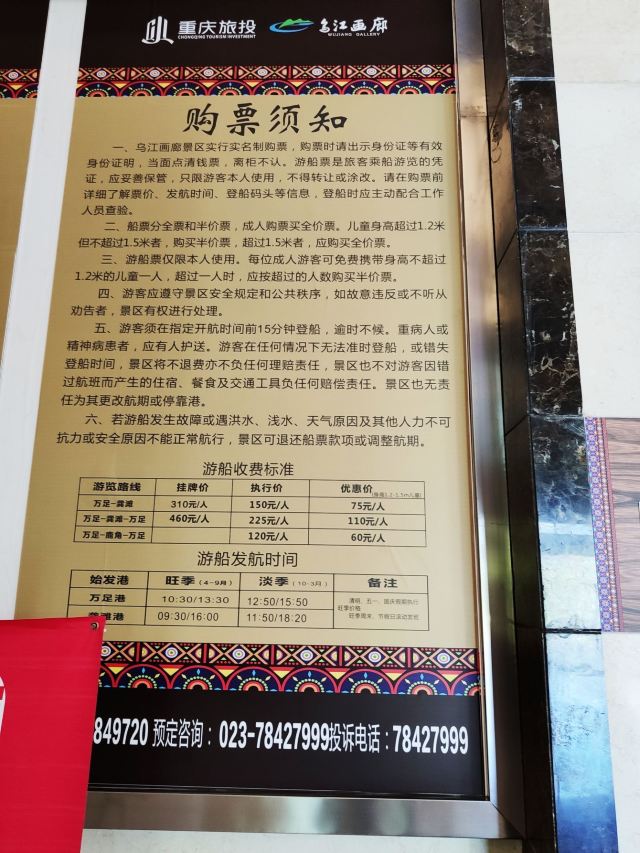 重庆旅投 乌江画廊
CHONGQING TOURISM INVESTMENT WUJIANG GALLERY
购票须知
一、乌江画廊景区实行实名制购票，购票时请出示身份证等有效
身份证明，当面点清钱票，离柜不认。游船票是旅客乘船游览的凭
证，应妥善保管，只限游客本人使用，不得转让或涂改。请在购票前
详细了解票价、发航时间、登船码头等信息，登船时应主动配合工作
人员查验。
二、船票分全票和半价票，成人购票买全价票。儿童身高超过1.2米
但不超过1.5米者，购买半价票，超过1.5米者，应购买全价票。
三、游船票仅限本人使用。每位成人游客可免费携带身高不超过
1.2米的儿童一人，超过一人时，应按超过的人数购买半价票。
四、游客应遵守景区安全规定和公共秩序，如故意违反或不听从
劝告者，景区有权进行处理。
五、游客须在指定开航时间前15分钟登船，逾时不候。重病人或
精神病患者，应有人护送。游客在任何情况下无法准时登船，或错失
登船时间，景区将不退费亦不负任何理赔责任，景区也不对游客因错
过航班而产生的住宿、餐食及交通工具负任何赔偿责任。景区也无责
任为其更改航期或停靠港。
六、若游船发生故障或遇洪水、浅水、天气原因及其他人力不可
抗力或安全原因不能正常航行，景区可退还船票款项或调整航期。
游船收费标准
游览路线 挂牌价 执行价 优惠价(身高1.2-1.5m儿童)
万足-龚滩 310元/人 150元/人 75元/人
万足-龚滩-万足 460元/人 225元/人 110元/人
万足-鹿角-万足 120元/人 60元/人
游船发航时间
始发港 旺季（4-9月） 淡季（10-3月） 备注
万足港 10:30/13:30 12:50/15:50 清明、五一、国庆假期执行
旺季价格
龚滩港 09:30/16:00 11:50/18:20 旺季周末、节假日滚动发班
849720 预定咨询：023-78427999 投诉电话：78427999